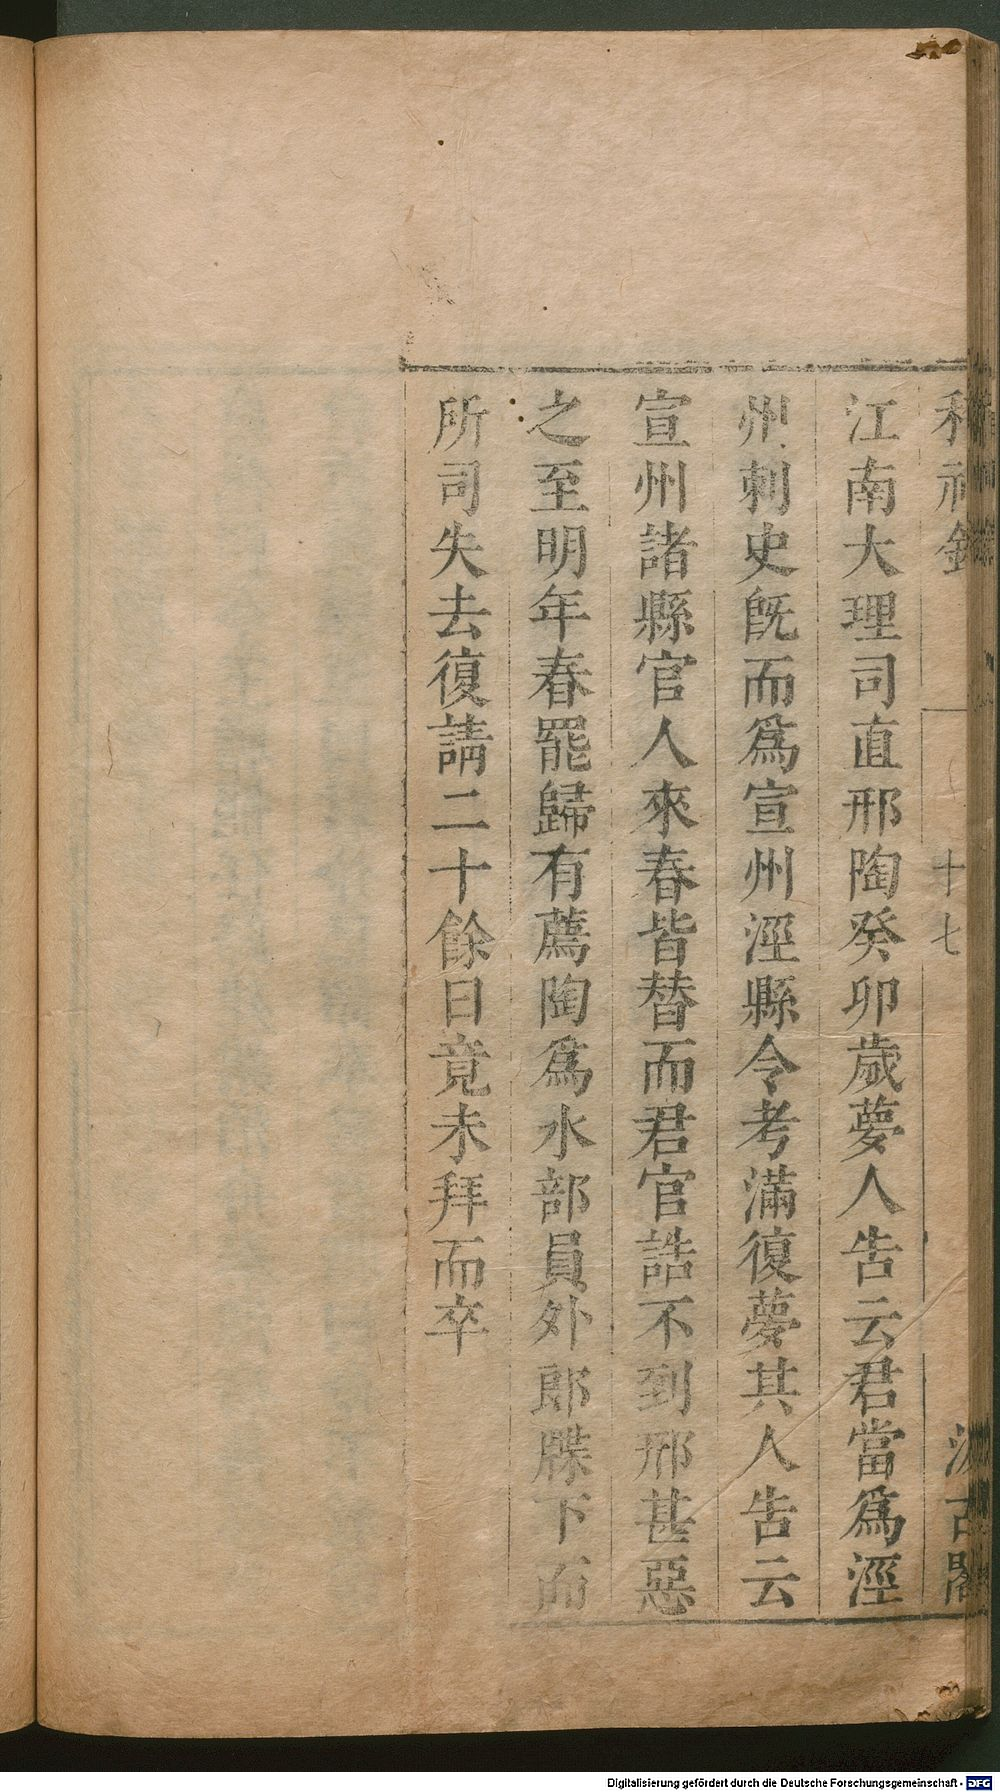 稽神錄
十七
汲古閣
江南大理司直邢陶癸卯歲夢人告云君當爲涇
州刺史旣而爲宣州涇縣令考滿復夢其人告云
宣州諸縣官人來春皆替而君官誥不到邢甚惡
之至明年春罷歸有薦陶爲水部員外郎牒下而
所司失去復請二十餘日竟未拜而卒
Digitalisierung gefördert durch die Deutsche Forschungsgemeinschaft - DFG